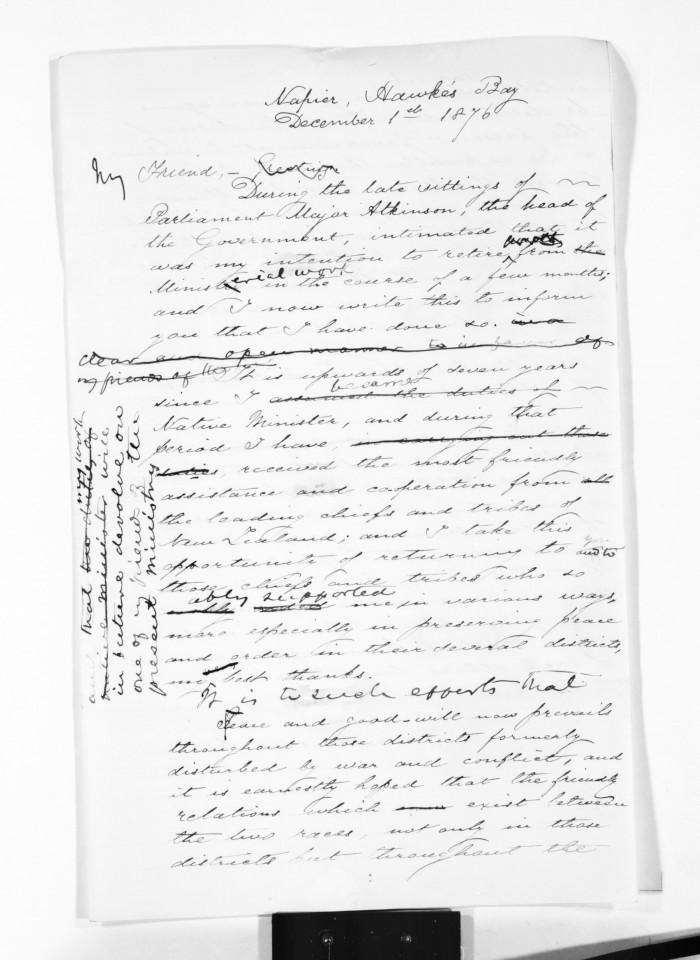 Napier, Hawke's Bay
December 1st 1876
My Friend, — Greeting
During the late sittings of
Parliament Major Atkinson, the head of
the Government, intimated that it
was my intention to retire from the
Ministerial work in the course of a few months;
and I now write this to inform
you that I have done so. in a
clear and open manner to
my friends of the It is upwards of seven years
since I assumed the duties of became
Native Minister, and during that
period I have, in carrying out those
duties, received the most friendly
assistance and cooperation from all
the leading chiefs and tribes of
New Zealand; and I take this
opportunity of returning to you and to
those chiefs and tribes who so
ably supported me in various ways,
more especially in preserving peace
and order in their several districts,
my best thanks.
It is to such efforts that
Peace and good-will now prevails
throughout those districts formerly
disturbed by war and conflict, and
it is earnestly hoped that the friendly
relations which now exist between
the two races, not only in those
districts but throughout the
and that the duties of my work
Native Minister will
in future devolve on
one of my friends of the
present Ministry